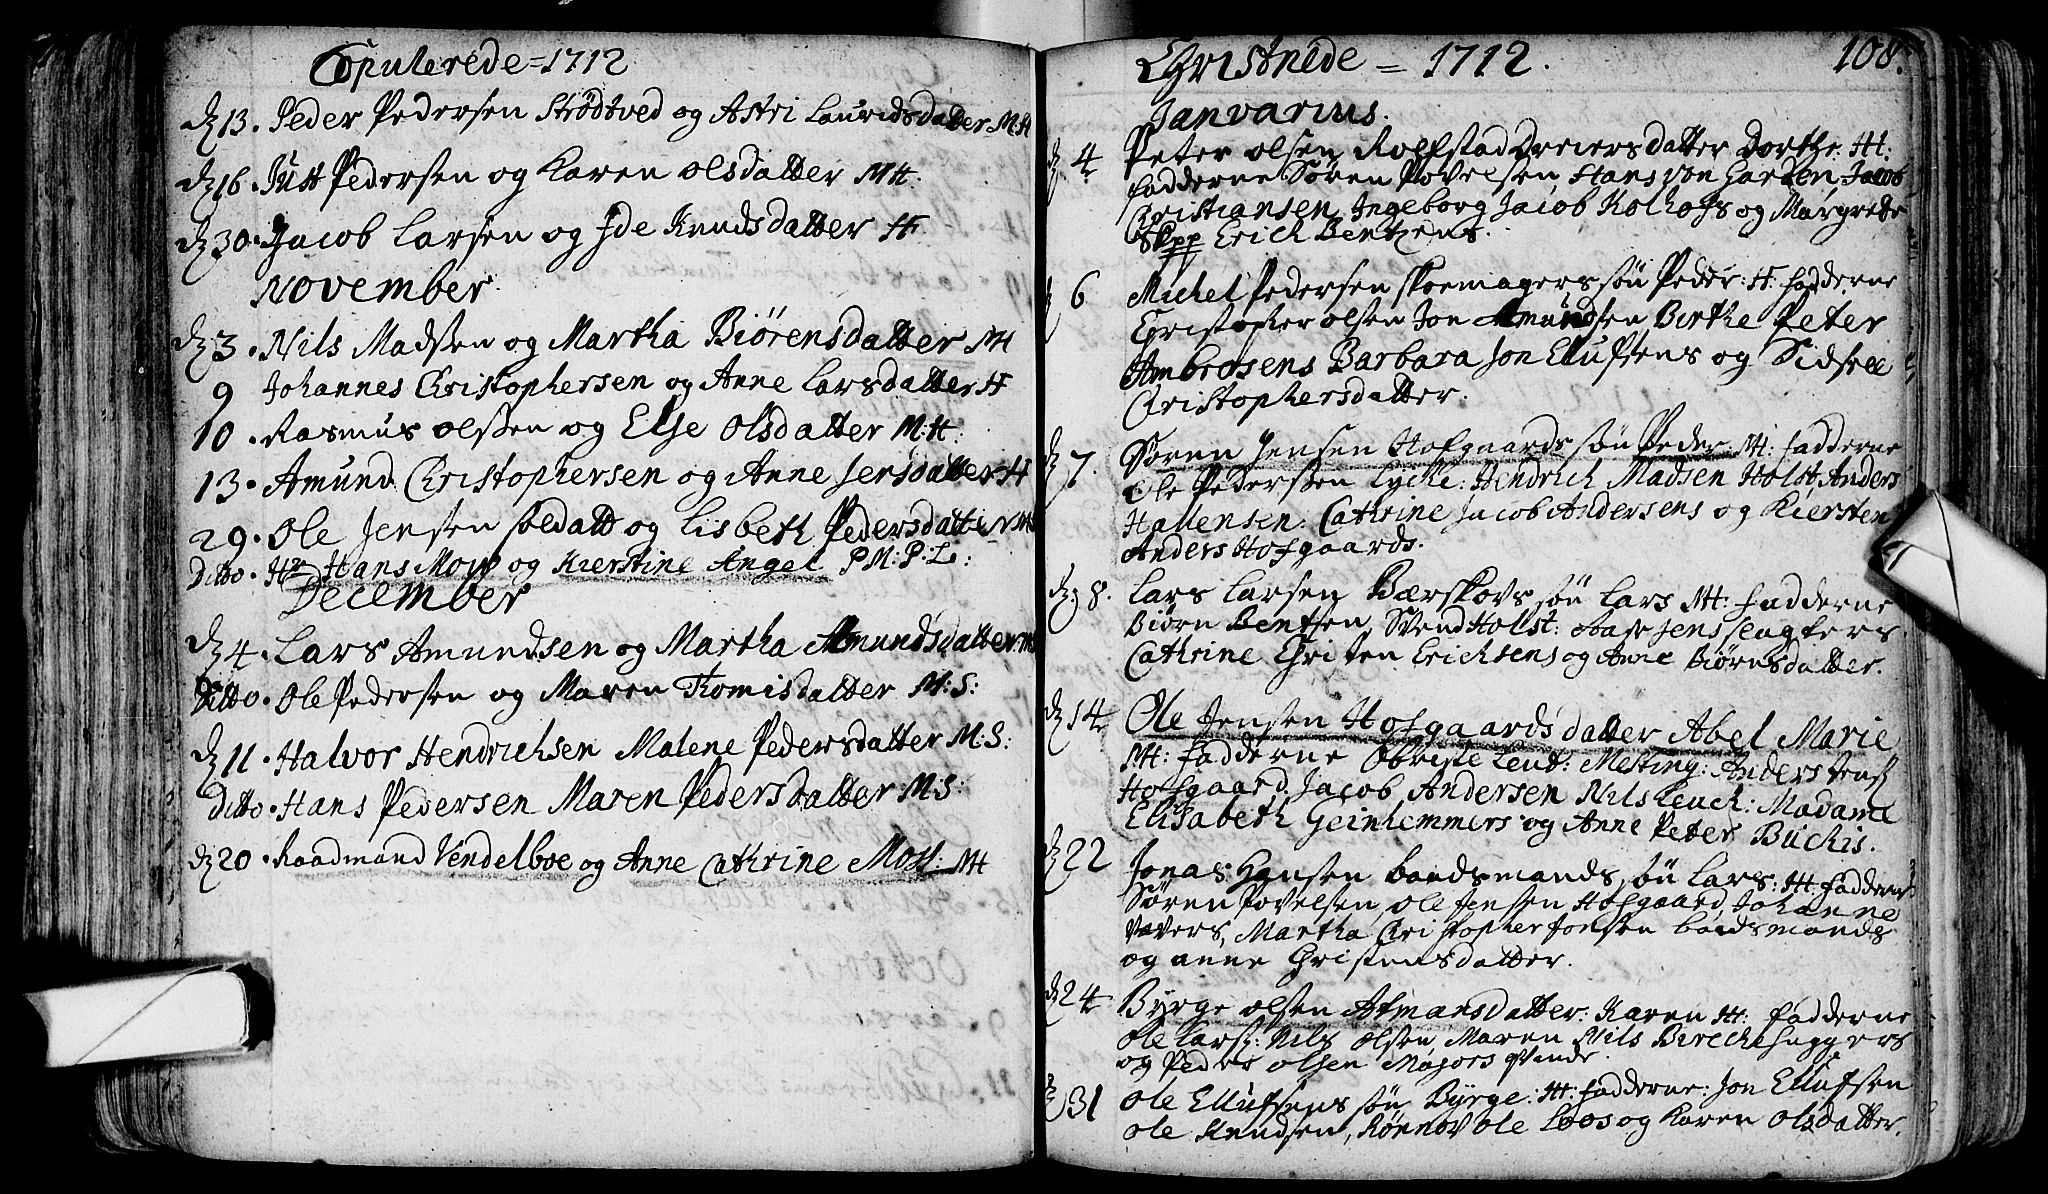 Copulerede = 1712
d 13. Peder Pedersen Strödtved og Astri Lauridsdatter MH
d 16. Just Pedersen og Karen Olsdatter MH.
d 30. Jacob Larsen og Ide Knudsdatter H
November.
d 3. Nils Madsen og Martha Biörensdatter MH
9 Johannes Christophersen og Anne Larsdatter H
10. Rasmus Olssen og Else Olsdatter M:H:
13. Amund Christophersen og Anne Jensdatter H
29. Ole Jensen soldatt og Lisbeth Pedersdatter
Ditto. Hr Hans og Kierstine Angel P.M:P:L:
December
d 4. Lars Amundsen og Martha Amundsdatter
Ditto. Ole Pedersen og Maren Tomisdatter M:S:
d 11. Halvor Hendrichsen Malene Pedersdatter M:S:
Ditto. Hans Pedersen Maren Pedersdatter M:S:
d 20. Raadmand Vendelboe og Anne Cathrine MH
Christnede = 1712. 108.
Janvarius.
d. 4 Peter Olsen Rolfstad Dreiers datter Dorthe: H:
fadderne Sören Povelsen, Hans von Garden, Jacob
Christiansen, Ingeborg Jacob Kolhofs og Margrete
Skpp Erich Bentzens.
6 Michel Pedersen skoemagers sön Peder: H: fadderne
Christopher Olsen Jon Amundsen Birthe Peter
Ambrosens Barbara Jon Ellufsens og Sidsel
Christophersdatter.
d 7. Sören Jensen Hofgaards sön Peder. H: fadderne
Ole Pederssen Lyche: Hendrich Madsen Holst Anders
Hallensen. Cathrine Jacob Andersens og Kiersten
Anders Hofgaards.
d 8. Lars Larsen Bærskovs sön Lars MH: fadderne
Biörn Bentsen, Svend Holst: Aase Jens slagters
Cathrine Christen Erichsens og Anne Biörnsdatter.
d 14 Ole Jensen Hofgaards datter Abel Marie
MH: fadderne Obriste Leut: Mesting: Anders Jens
Hofgaard Jacob Andersen Nils Leuch: Madame
Elisabeth Geinhemmers og Anne Peter Buchis.
d 22 Jonas Hansen baadsmands sön Lars: H: fadderne
Sören Povelsen, Ole Jensen Hofgaard, Johanne
Vævers, Martha Christopher Jonsen baadsmands
og anne Christensdatter.
d 24 Byrge Olsen Asmansdatter: Karen H: fadderne
Ole Lars: Nils Olsen Maren Nils Birchehuggers
og Peder Olsen Majors qvinde.
31 Ole Ellufsens sön Byrge: H: fadderne: Jon Ellufsen
Ole Knudsen, Rönnov Ole Loos og Karen Olsdatter.